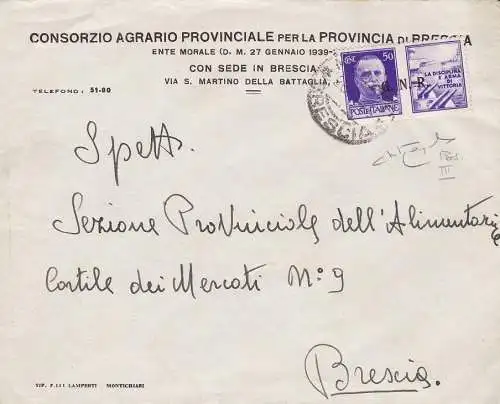 CONSORZIO AGRARIO PROVINCIALE PER LA PROVINCIA DI BRESCIA
ENTE MORALE (D. M. 27 GENNAIO 1939-
CON SEDE IN BRESCIA
VIA S. MARTINO DELLA BATTAGLIA,
TELEFONO: 51-80
CENT. 50
POSTE ITALIANE
LA DISCIPLINA
È ARMA
DI
VITTORIA
G. N. R.
BRESCIA
Spett.
Sezione Provinciale dell'Alimentazione
Cortile dei Mercati N° 9
Brescia.
III
TIP. F.LLI LAMPERTI - MONTICHIARI